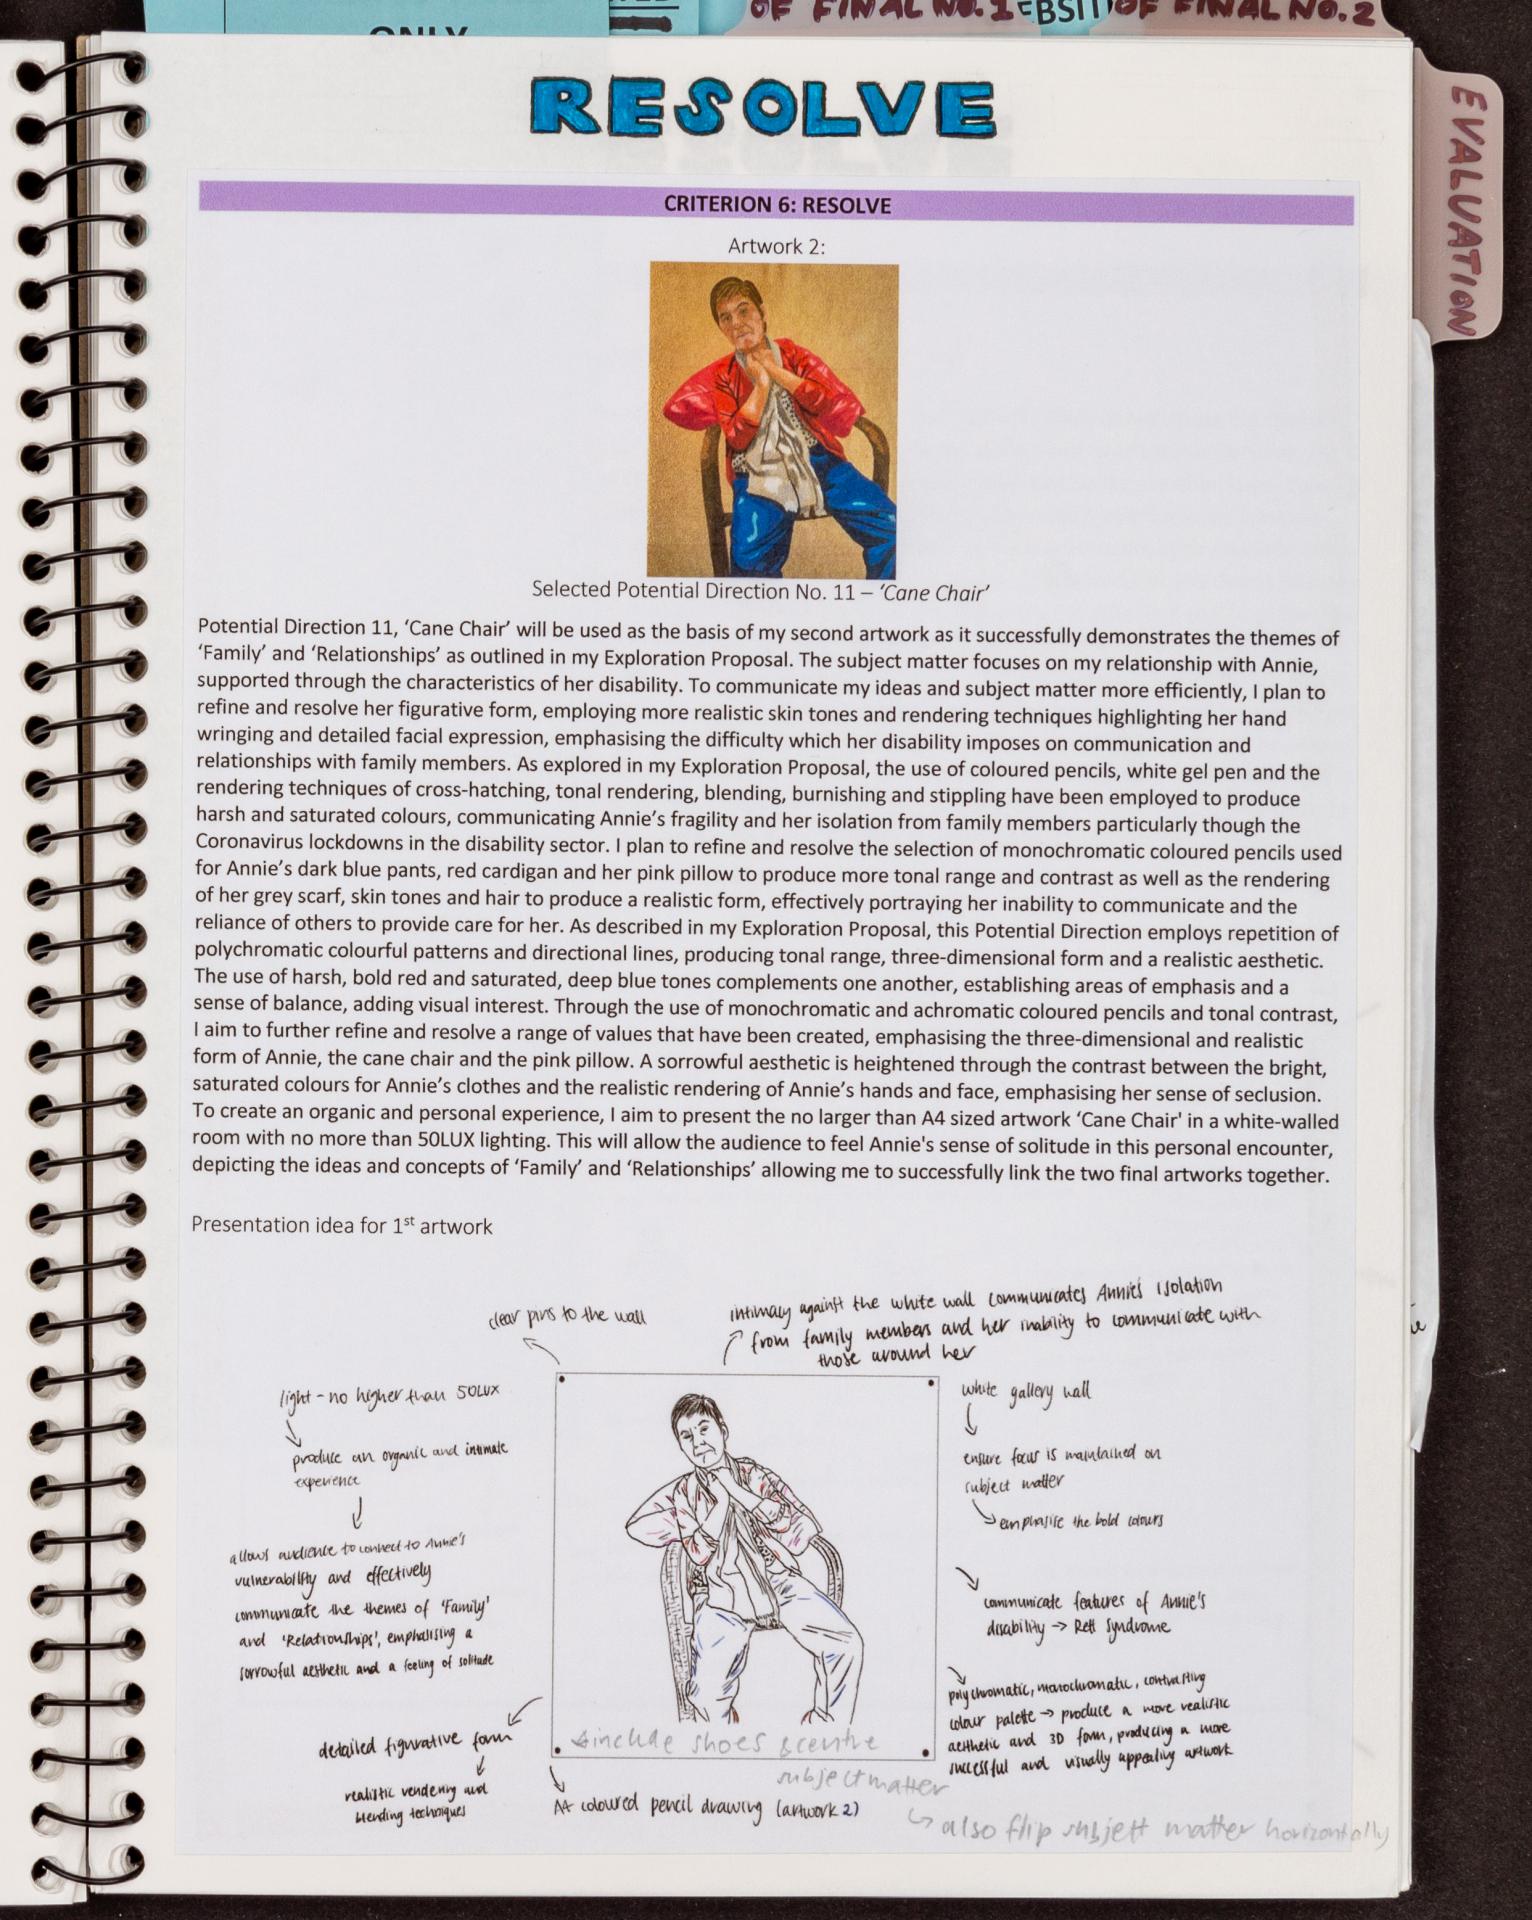 OF FINAL NO.1
EBSIT
OF FINAL NO.2
ONLY
EVALUATION
RESOLVE
CRITERION 6: RESOLVE
Artwork 2:
Selected Potential Direction No. 11 – ‘Cane Chair’
Potential Direction 11, ‘Cane Chair’ will be used as the basis of my second artwork as it successfully demonstrates the themes of
‘Family’ and ‘Relationships’ as outlined in my Exploration Proposal. The subject matter focuses on my relationship with Annie,
supported through the characteristics of her disability. To communicate my ideas and subject matter more efficiently, I plan to
refine and resolve her figurative form, employing more realistic skin tones and rendering techniques highlighting her hand
wringing and detailed facial expression, emphasising the difficulty which her disability imposes on communication and
relationships with family members. As explored in my Exploration Proposal, the use of coloured pencils, white gel pen and the
rendering techniques of cross-hatching, tonal rendering, blending, burnishing and stippling have been employed to produce
harsh and saturated colours, communicating Annie’s fragility and her isolation from family members particularly though the
Coronavirus lockdowns in the disability sector. I plan to refine and resolve the selection of monochromatic coloured pencils used
for Annie’s dark blue pants, red cardigan and her pink pillow to produce more tonal range and contrast as well as the rendering
of her grey scarf, skin tones and hair to produce a realistic form, effectively portraying her inability to communicate and the
reliance of others to provide care for her. As described in my Exploration Proposal, this Potential Direction employs repetition of
polychromatic colourful patterns and directional lines, producing tonal range, three-dimensional form and a realistic aesthetic.
The use of harsh, bold red and saturated, deep blue tones complements one another, establishing areas of emphasis and a
sense of balance, adding visual interest. Through the use of monochromatic and achromatic coloured pencils and tonal contrast,
I aim to further refine and resolve a range of values that have been created, emphasising the three-dimensional and realistic
form of Annie, the cane chair and the pink pillow. A sorrowful aesthetic is heightened through the contrast between the bright,
saturated colours for Annie’s clothes and the realistic rendering of Annie’s hands and face, emphasising her sense of seclusion.
To create an organic and personal experience, I aim to present the no larger than A4 sized artwork ‘Cane Chair' in a white-walled
room with no more than 50LUX lighting. This will allow the audience to feel Annie's sense of solitude in this personal encounter,
depicting the ideas and concepts of ‘Family’ and ‘Relationships’ allowing me to successfully link the two final artworks together.
Presentation idea for 1st artwork
clear pins to the wall
intimacy against the white wall communicates Annie's isolation
from family members and her inability to communicate with
those around her
light - no higher than 50LUX
produce an organic and intimate
experience
allows audience to connect to Annie's
vulnerability and effectively
communicate the themes of 'Family'
and 'Relationships', emphasising a
sorrowful aesthetic and a feeling of solitude
detailed figurative form
realistic rendering and
blending techniques
white gallery wall
ensure focus is maintained on
subject matter
emphasise the bold colours
communicate features of Annie's
disability → Rett Syndrome
polychromatic, monochromatic, contrasting
colour palette → produce a more realistic
aesthetic and 3D form, producing a more
successful and visually appealing artwork
include shoes & centre
subject matter
A4 coloured pencil drawing (artwork 2)
also flip subject matter horizontally